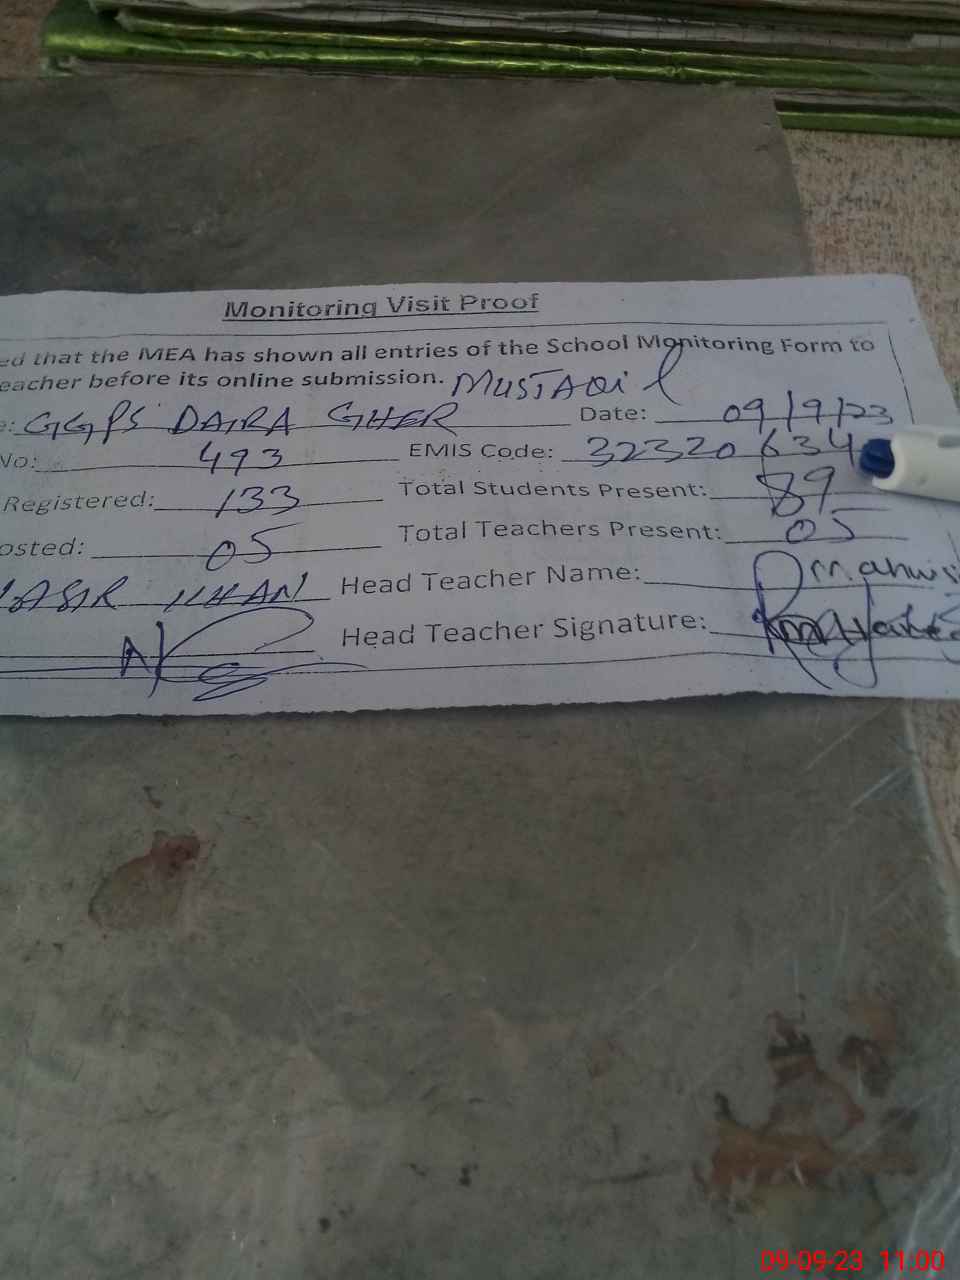 Monitoring Visit Proof
ed that the MEA has shown all entries of the School Monitoring Form to
eacher before its online submission. MUSTAQIL
e: GGPS DAIRA GHER Date: 09/9/23
No: 493 EMIS Code: 32320634
Registered: 133 Total Students Present: 89
osted: 05 Total Teachers Present: 05
ASIR KHAN Head Teacher Name:
Head Teacher Signature:
09-09-23 11:00